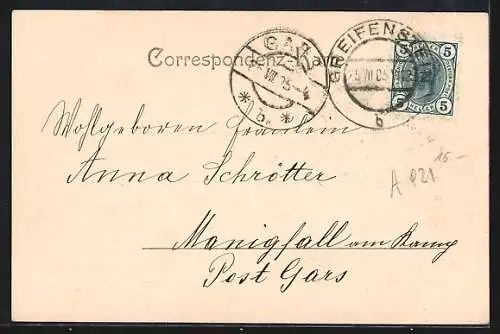 Correspondenz-Karte
GARS
VII 05-4
* b *
GREIFENSTEIN
-5 VII 05
b
5 5
5 5
Wohlgeboren Fräulein
Anna Schrötter
A 421
15-
Manigfall am Kamp
Post Gars